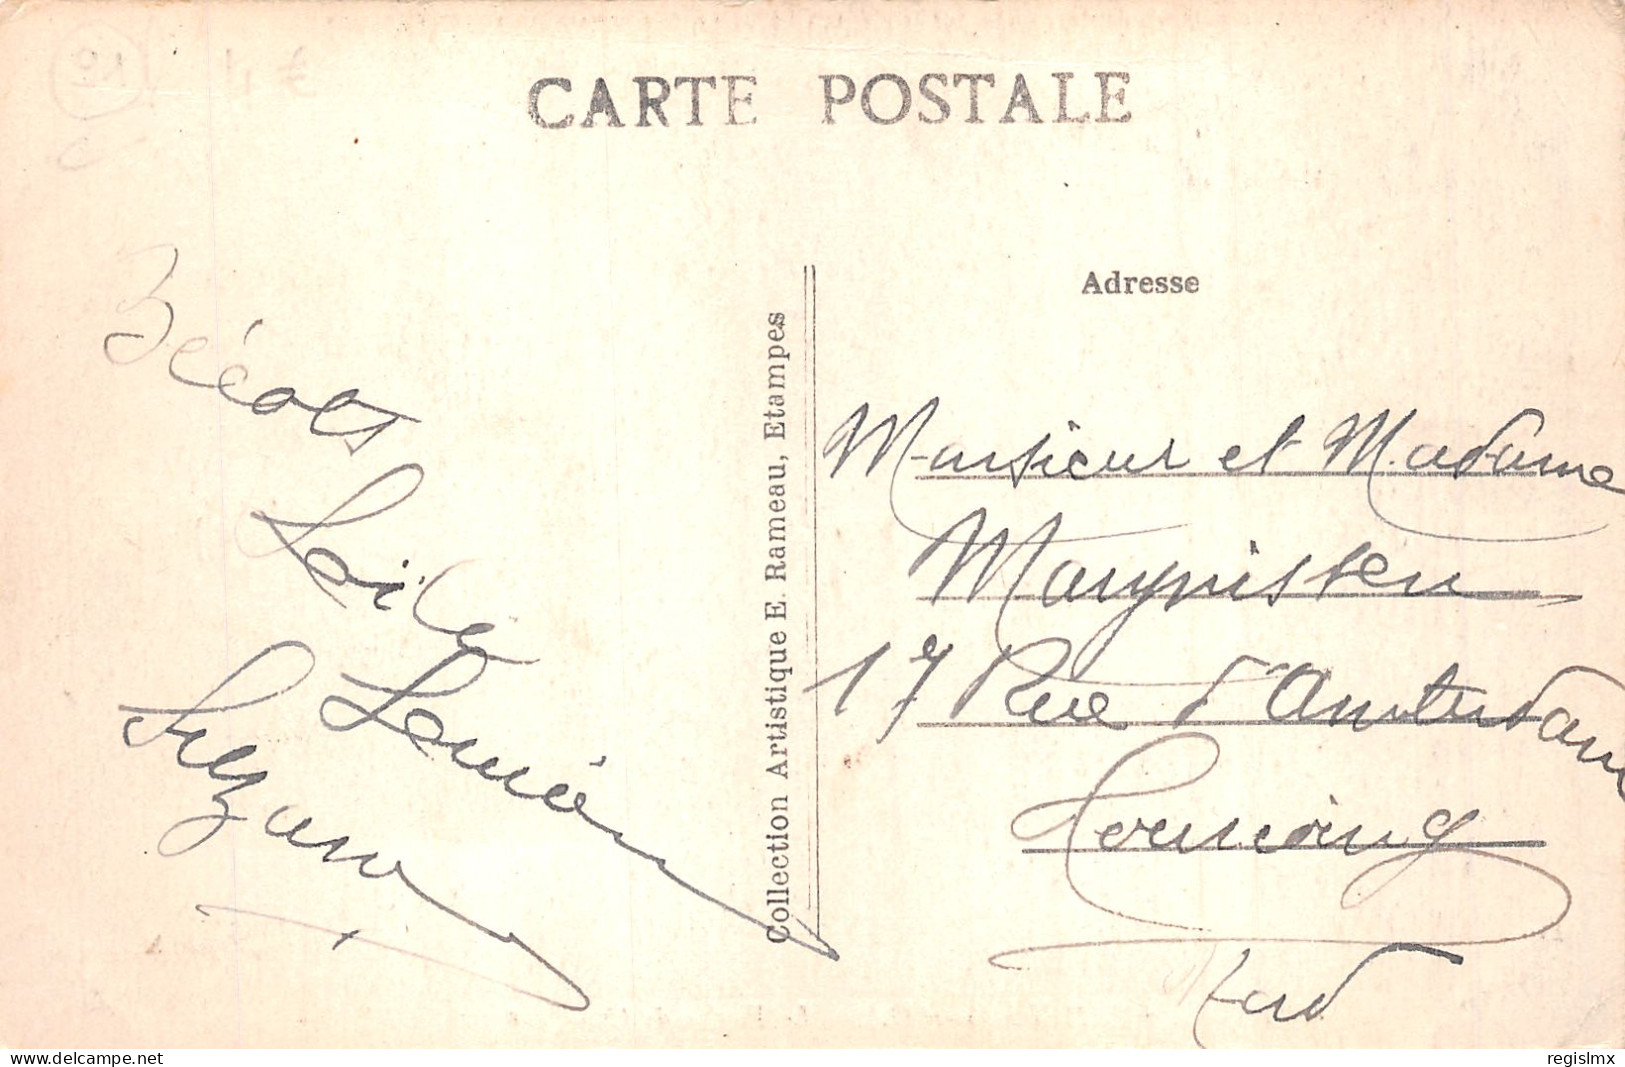 CARTE POSTALE
Bécots
Suzanne
Collection Artistique E. Rameau, Etampes
Adresse
Monsieur et Madame
17 Rue d'Amsterdam
Tourcoing
Nord
delcampe.net
regislmx